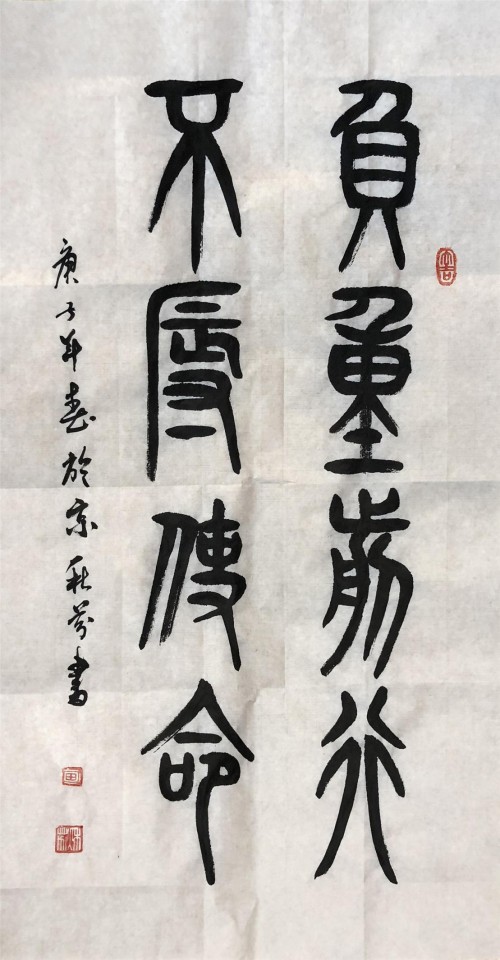 負重前行
不辱使命
庚子年春於京秋芬書